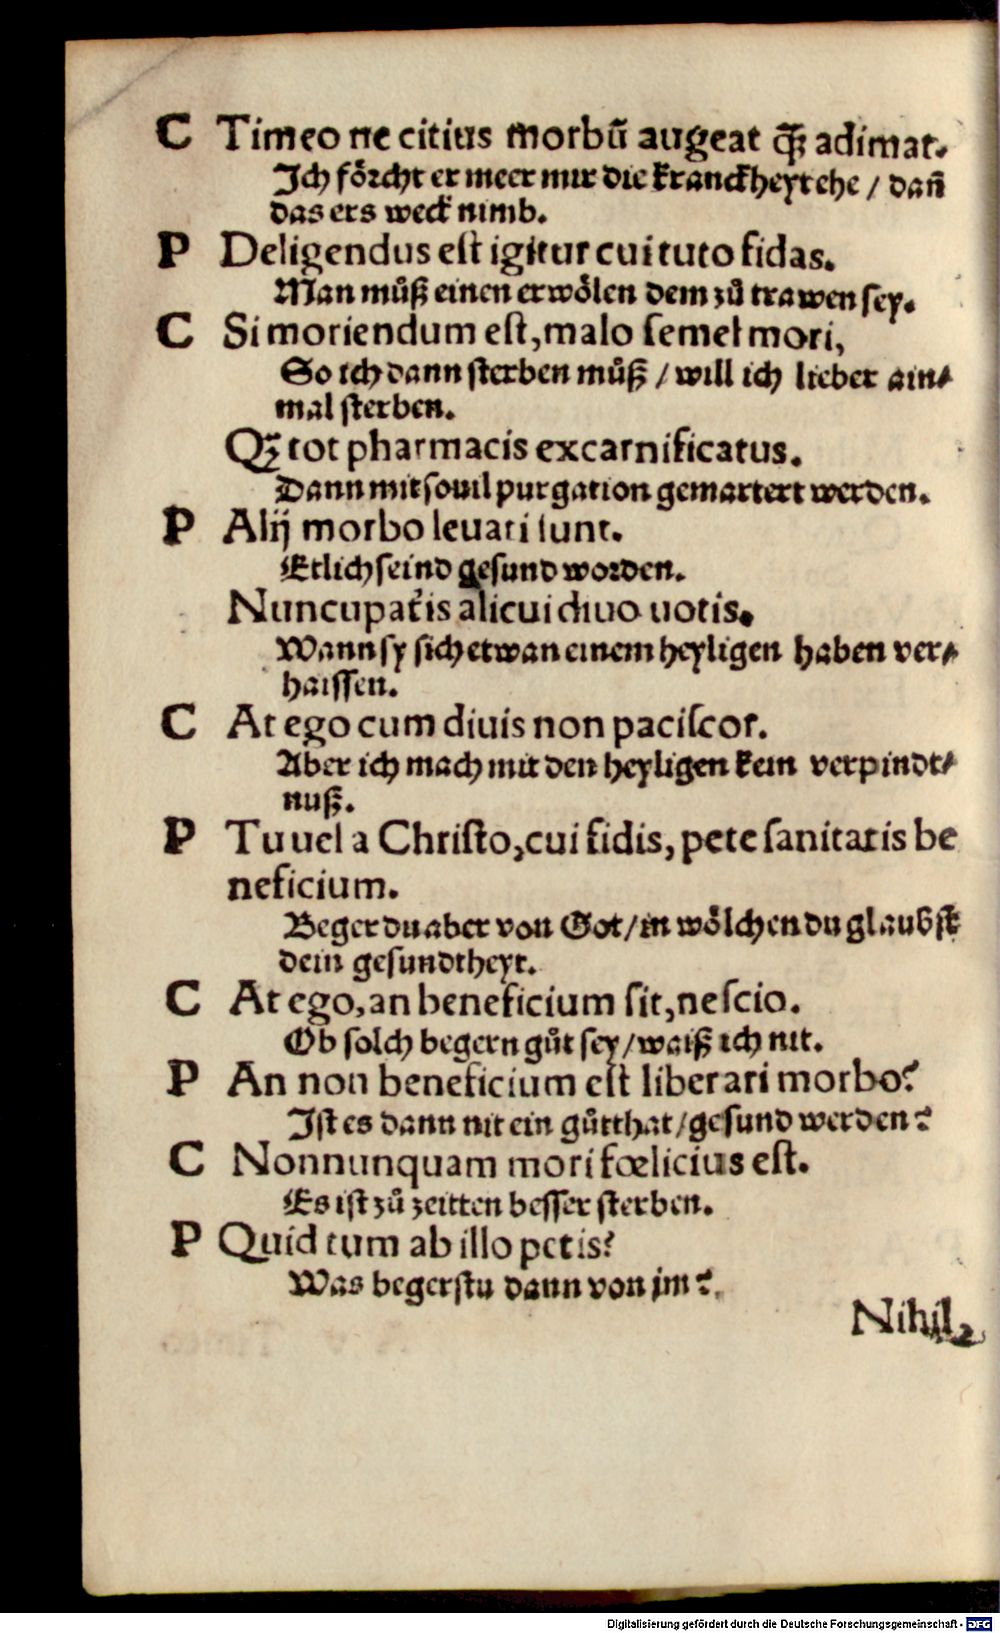 C Timeo ne citius morbũ augeat ꝗ̃ꝫ adimat.
Ich foͤrcht er meer mir die kranckheyt ehe / dañ
das ers weck nimb.
P Deligendus eſt igitur cui tuto fidas.
Man můſz einen erwoͤlen dem zů trawen ſey.
C Si moriendum eſt, malo ſemel mori,
So ich dann ſterben můſz / will ich lieber ain⸗
mal ſterben.
Qꝫ tot pharmacis excarnificatus.
Dann mit ſouil purgation gemartert werden.
P Alij morbo leuati ſunt.
Etlich ſeind geſund worden.
Nuncupatis alicui diuo uotis.
Wann ſy ſich etwan einem heyligen haben ver⸗
haiſſen.
C At ego cum diuis non paciſcor.
Aber ich mach mit den heyligen kein verpindt⸗
nuſz.
P Tu uel a Chriſto, cui fidis, pete ſanitatis be
neficium.
Beger du aber von Got / in woͤlchen du glaubſt
dein geſundtheyt.
C At ego, an beneficium ſit, neſcio.
Ob ſolch begern gůt ſey / waiſz ich nit.
P An non beneficium eſt liberari morbo?
Iſt es dann nit ein gůtthat / geſund werden?
C Nonnunquam mori fœlicius eſt.
Es iſt zů zeitten beſſer ſterben.
P Quid tum ab illo petis?
Was begerſtu dann von jm?
Nihil
Digitalisierung gefördert durch die Deutsche Forschungsgemeinschaft - DFG